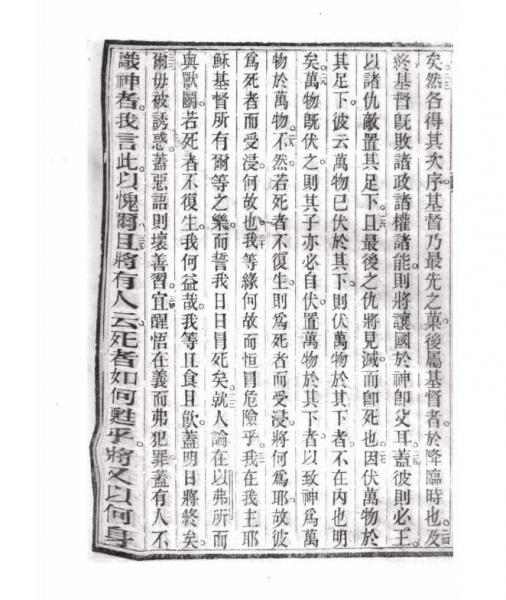 矣然各得其次序基督乃最先之菓後屬基督者於降臨時也及
終基督旣敗諸政諸權諸能則將讓國於神卽父耳蓋彼則必王
以諸仇敵置其足下且最後之仇將見滅而卽死也因伏萬物於
其足下彼云萬物已伏於其下則伏萬物於其下者不在內也明
矣萬物旣伏之則其子亦必自伏置萬物於其下者以致神爲萬
物於萬物不然若死者不復生則爲死者而受浸將何爲耶故彼
爲死者而受浸何故也我等緣何故而恒冒危險乎我在我主耶
穌基督所有爾等之樂而誓我日日冒死矣就人論在以弗所而
與獸鬭若死者不復生我何益哉我等且食且飮蓋明日將終矣
爾毋被誘惑蓋惡語則壞善習宜醒悟在義而弗犯罪蓋有人不
識神者我言此以愧爾且將有人云死者如何甦乎將又以何身